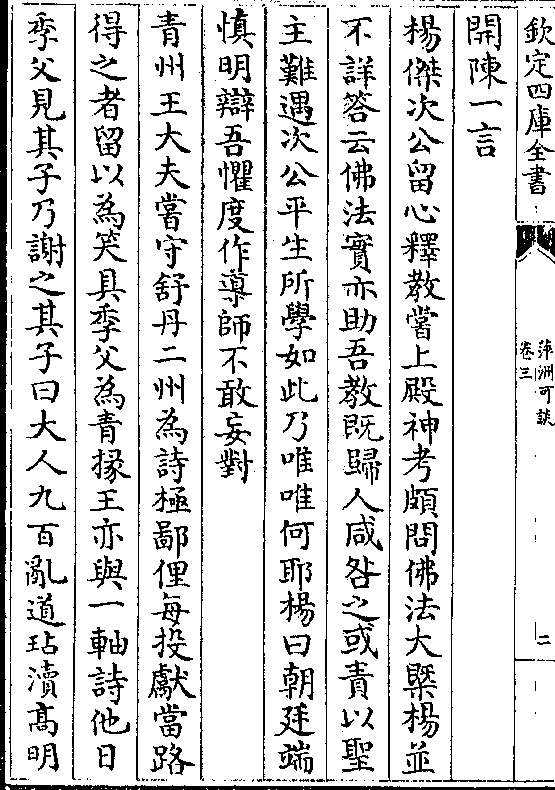 欽定四庫全書
萍洲可談
卷三
二
開陳一言
楊傑次公留心釋教嘗上殿神考頗問佛法大槩楊並
不詳答云佛法實亦助吾教既歸人咸咎之或責以聖
主難遇次公平生所學如此乃唯唯何耶楊曰朝廷端
慎明辯吾懼度作導師不敢妄對
青州王大夫嘗守舒丹二州為詩極鄙俚每投獻當路
得之者留以為笑具季父為青掾王亦與一軸詩他日
季父見其子乃謝之其子曰大人九百亂道玷瀆髙明